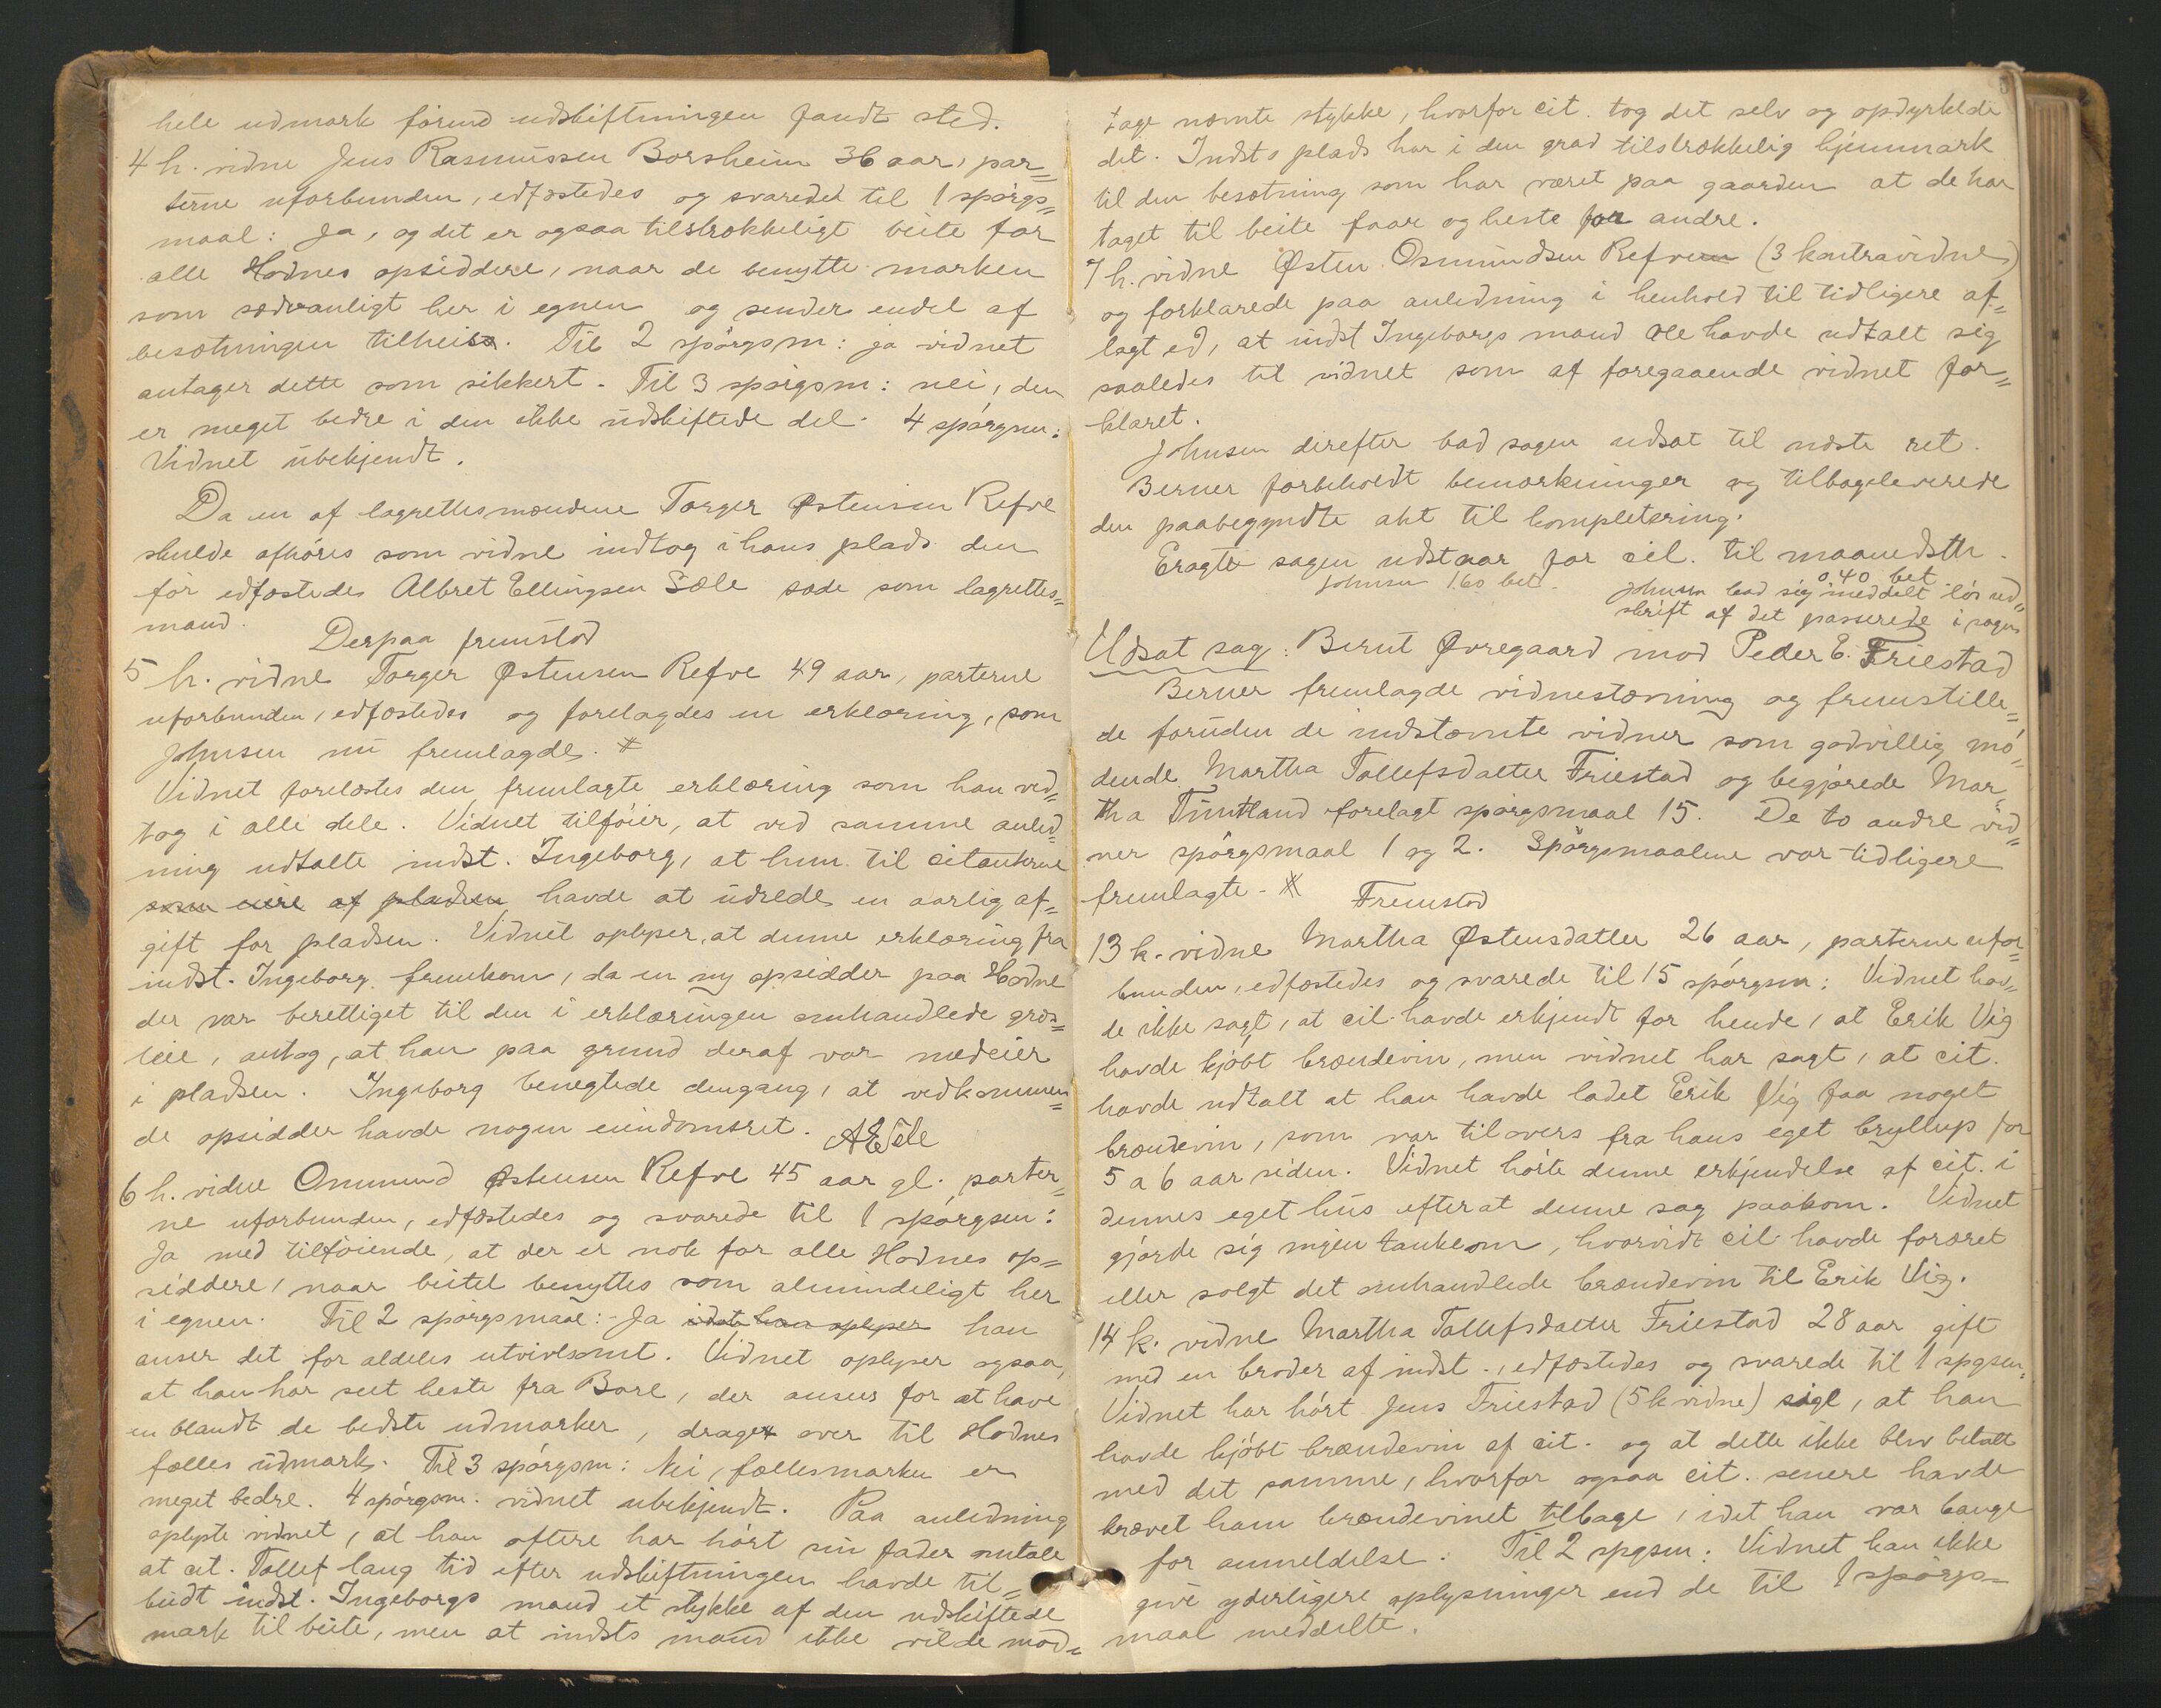 hele udmark förend udskiftningen fandt sted.
4 h. vidne Jens Rasmussen Borsheim 36 aar, par-
terne uforbunden, edfæstedes og svarede til 1 spörgs-
maal: Ja, og det er ogsaa tilstrækkeligt beite for
alle Hodnes opsiddere, naar de benytte marken
som sædvanligt her i egnen og sender endel af
besætningen tilheis. Til 2 spörgsm: ja vidnet
antager dette som sikkert. Til 3 spörgsm: nei, den
er meget bedre i den ikke udskiftede del. 4 spörgsm:
Vidnet ubekjendt.
Da en af lagrettesmændene Torger Østensen Refve
skulde afhöres som vidne indtog i hans plads den
för edfæstedes Albret Ellingsen Sæle sæde som lagrettes-
mand.
Derpaa fremstod
5 h. vidne Torger Østensen Refve 49 aar, parterne
uforbunden, edfæstedes og forelagdes en erklæring, som
Johnsen nu fremlagde. #
Vidnet forelæstes den fremlagte erklæring som han ved-
tog i alle dele. Vidnet tilföier, at ved samme anled-
ning udtalte indst. Ingeborg, at hun til citanterne
som eiere af pladsen havde at udrede en aarlig af-
gift for pladsen. Vidnet oplyser, at denne erklæring fra
indst. Ingeborg fremkom, da en ny opsidder paa Hodne
der var berettiget til den i erklæringen omhandlede græs-
leie, antog, at han paa grund deraf var medeier
i pladsen. Ingeborg benegtede dengang, at vedkommen-
de opsidder havde nogen eiendomsret. AESele
6 h. vidne Ommund Østensen Refve 45 aar gl. parter-
ne uforbunden, edfæstedes og svarede til 1 spörgsm:
Ja med tilföiende, at der er nok for alle Hodnes op-
siddere, naar beitet benyttes som almindeligt her
i egnen. Til 2 spörgsmaal: Ja idet han oplyser han
anser det for aldeles utvivlsomt. Vidnet oplyser ogsaa,
at han har seet heste fra Bore, der ansees for at have
en blandt de bedste udmarker, drages over til Hodnes
fælles udmark. Til 3 spörgsm: Nei, fællesmarken er
meget bedre. 4 spörgsm. vidnet ubekjendt. Paa anledning
oplyste vidnet, at han oftere har hört sin fader omtale
at cit. Tollef lang tid efter udskiftningen havde til-
budt indst. Ingeborgs mand et stykke af den udskiftede
mark til beite, men at indsts mand ikke vilde mod-
tage nævnte stykke, hvorfor cit. tog det selv og opdyrkede
det. Indsts plads har i den grad tilstrækkelig hjemmark
til den besætning som har været paa gaarden at de har
taget til beite faar og heste for andre.
7 h. vidne Østen Osmundsen Refve (3 kontravidne)
og forklarede paa anledning i henhold til tidligere af-
lagt ed, at indst Ingeborgs mand Ole havde udtalt sig
saaledes til vidnet som af foregaaende vidnet for-
klaret.
Johnsen derefter bad sagen udsat til næste ret.
Berner forbeholdt bemærkninger og tilbageleverede
den paabegyndte akt til komplettering.
Eragtet sagen udstaar for cit. til maanedsth.
Johnsen 1.60 bet. 0.40 bet
Johnsen bad sig meddelt lös ud-
skrift af det passerede i sagen
Udsat sag: Bernt Øvregaard mod Peder E. Friestad
Berner fremlagde vidnestævning og fremstille-
de foruden de indstævnte vidner som godvillig mö-
dende Martha Tollefsdatter Friestad og begjærede Mar-
tha Tuntland forelagt spörgsmaal 15. De to andre vid-
ner spörgsmaal 1 og 2. Spörgsmaalene var tidligere
fremlagte - #
Fremstod
13 k. vidne Martha Østensdatter 26 aar, parterne ufor-
bunden, edfæstedes og svarede til 15 spörgsm: Vidnet hav-
de ikke sagt, at cit. havde erkjendt for hende, at Erik Vig
havde kjöbt brændevin, men vidnet har sagt, at cit.
havde udtalt at han havde ladet Erik Vig faa noget
brændevin, som var tilovers fra hans eget bryllup for
5 a 6 aar siden. Vidnet hörte denne erkjendelse af cit. i
dennes eget hus efterat denne sag paakom. Vidnet
gjorde sig ingen tanke om, hvorvidt cit havde foræret
eller solgt det omhandlede brændevin til Erik Vig.
14 k. vidne Martha Tollefsdatter Friestad 28 aar gift
med en broder af indst., edfæstedes og svarede til 1 spgsm.
Vidnet har hört Jens Friestad (5 k vidne) sige, at han
havde kjöbt brændevin af cit. og at dette ikke blev betalt
med det samme, hvorfor ogsaa cit. senere havde
krævet ham brændevinet tilbage, idet han var bange
for anmeldelse. Til 2 spgsm: Vidnet kan ikke
give yderligere oplysninger end de til 1 spörgs-
maal meddelte.